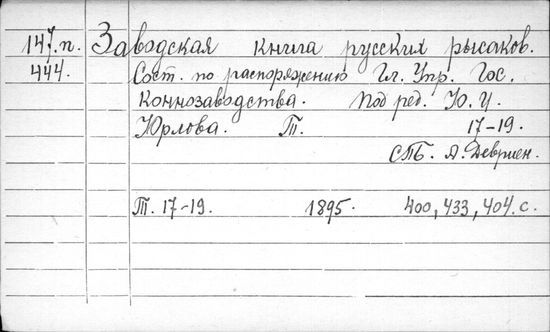 147.п. Заводская книга русских рысаков.
444. Сост. по распоряжению Гл. Упр. Гос.
Коннозаводства. Под ред. Ю. И.
Юрлова. Т. 17-19.
СПБ. А. Девриен.
Т. 17-19. 1895. 400, 433, 404. с.